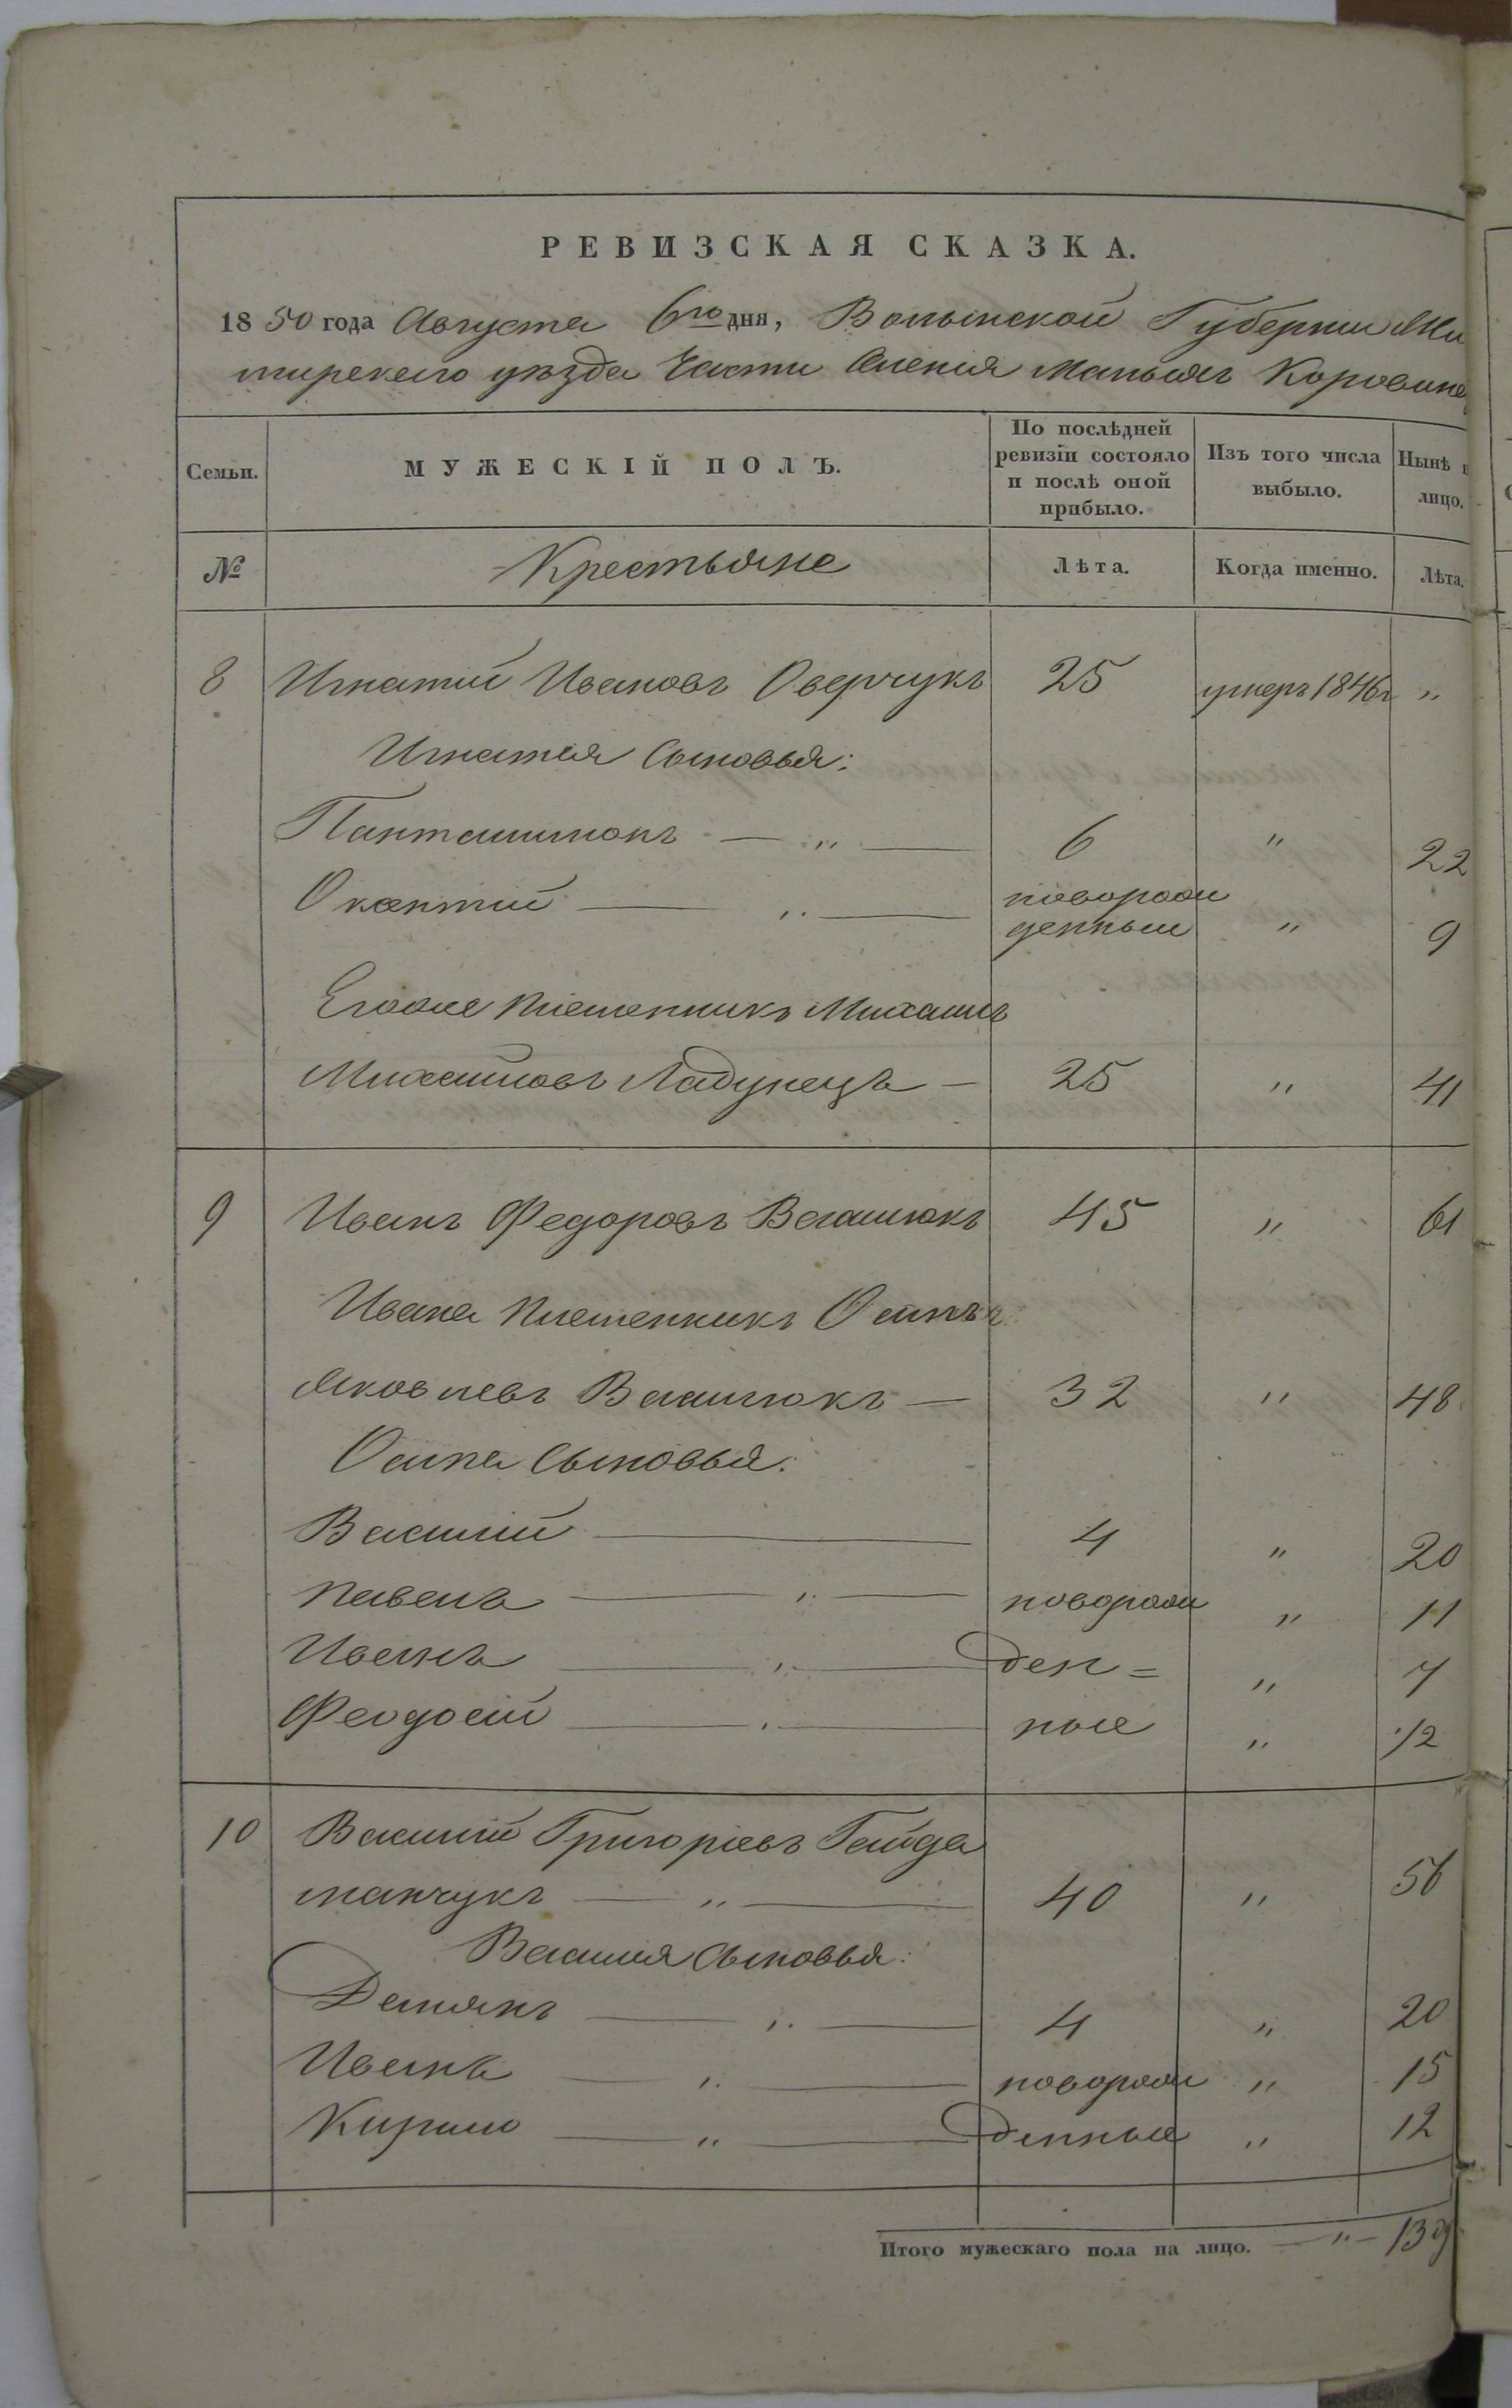 РЕВИЗСКАЯ СКАЗКА.
1850 года Августа 6го дня, Волынской Губернии Жи
тирского уѣзда Части Селенія Малыхъ Коровине
Семьи.
МУЖЕСКІЙ ПОЛЪ.
По послѣдней ревизіи состояло и послѣ оной прибыло.
Изъ того числа выбыло.
Нынѣ н лицо.
№ Крестьяне Лѣта. Когда именно. Лѣта.
8 Игнатій Ивановъ Оверчукъ 25 умеръ 1846г "
Игнатія Сыновья:
Панталимонъ — " — 6 " 22
новорож
Оксентій — " — денный " 9
Егоже племенникъ Михаилъ
Михайловъ Ладунецъ — 25 " 41
9 Иванъ Федоровъ Васылюкъ 45 " 61
Ивана племенникъ Осипъ
Яковлевъ Васылюкъ — 32 " 48
Осипа Сыновья:
Василій — 4 " 20
Павелъ — " — новорож " 11
Иванъ — " — ден= " 7
Феодосій — " — ные " 1/2
10 Василій Григоріевъ Гайда
манчукъ — " — 40 " 56
Василія Сыновья:
Демянъ — " — 4 " 20
Иванъ — " — новорож " 15
Кирило — " — денные " 12
Итого мужескаго пола на лицо. — " — 13